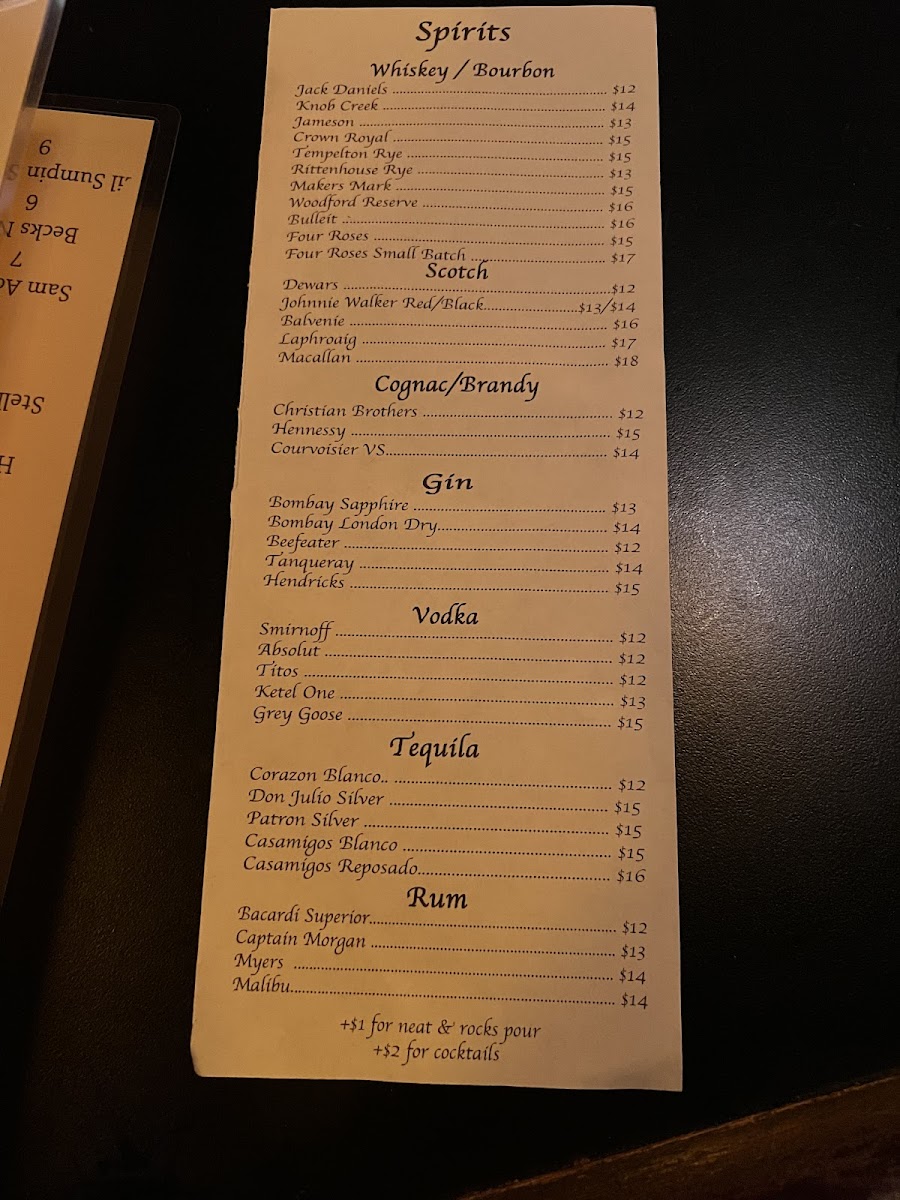 Spirits
Whiskey / Bourbon
Jack Daniels ........ $12
Knob Creek ........ $14
Jameson ........ $13
Crown Royal ........ $15
Tempelton Rye ........ $15
Rittenhouse Rye ........ $13
Makers Mark ........ $15
Woodford Reserve ........ $16
Bulleit ........ $16
Four Roses ........ $15
Four Roses Small Batch ........ $17
Scotch
Dewars ........ $12
Johnnie Walker Red/Black........ $13/$14
Balvenie ........ $16
Laphroaig ........ $17
Macallan ........ $18
Cognac/Brandy
Christian Brothers ........ $12
Hennessy ........ $15
Courvoisier VS........ $14
Gin
Bombay Sapphire ........ $13
Bombay London Dry........ $14
Beefeater ........ $12
Tanqueray ........ $14
Hendricks ........ $15
Vodka
Smirnoff ........ $12
Absolut ........ $12
Titos ........ $12
Ketel One ........ $13
Grey Goose ........ $15
Tequila
Corazon Blanco.. ........ $12
Don Julio Silver ........ $15
Patron Silver ........ $15
Casamigos Blanco ........ $15
Casamigos Reposado........ $16
Rum
Bacardi Superior........ $12
Captain Morgan ........ $13
Myers ........ $14
Malibu........ $14
+$1 for neat & rocks pour
+$2 for cocktails
Sam
7
Becks
6
Sumpin
9